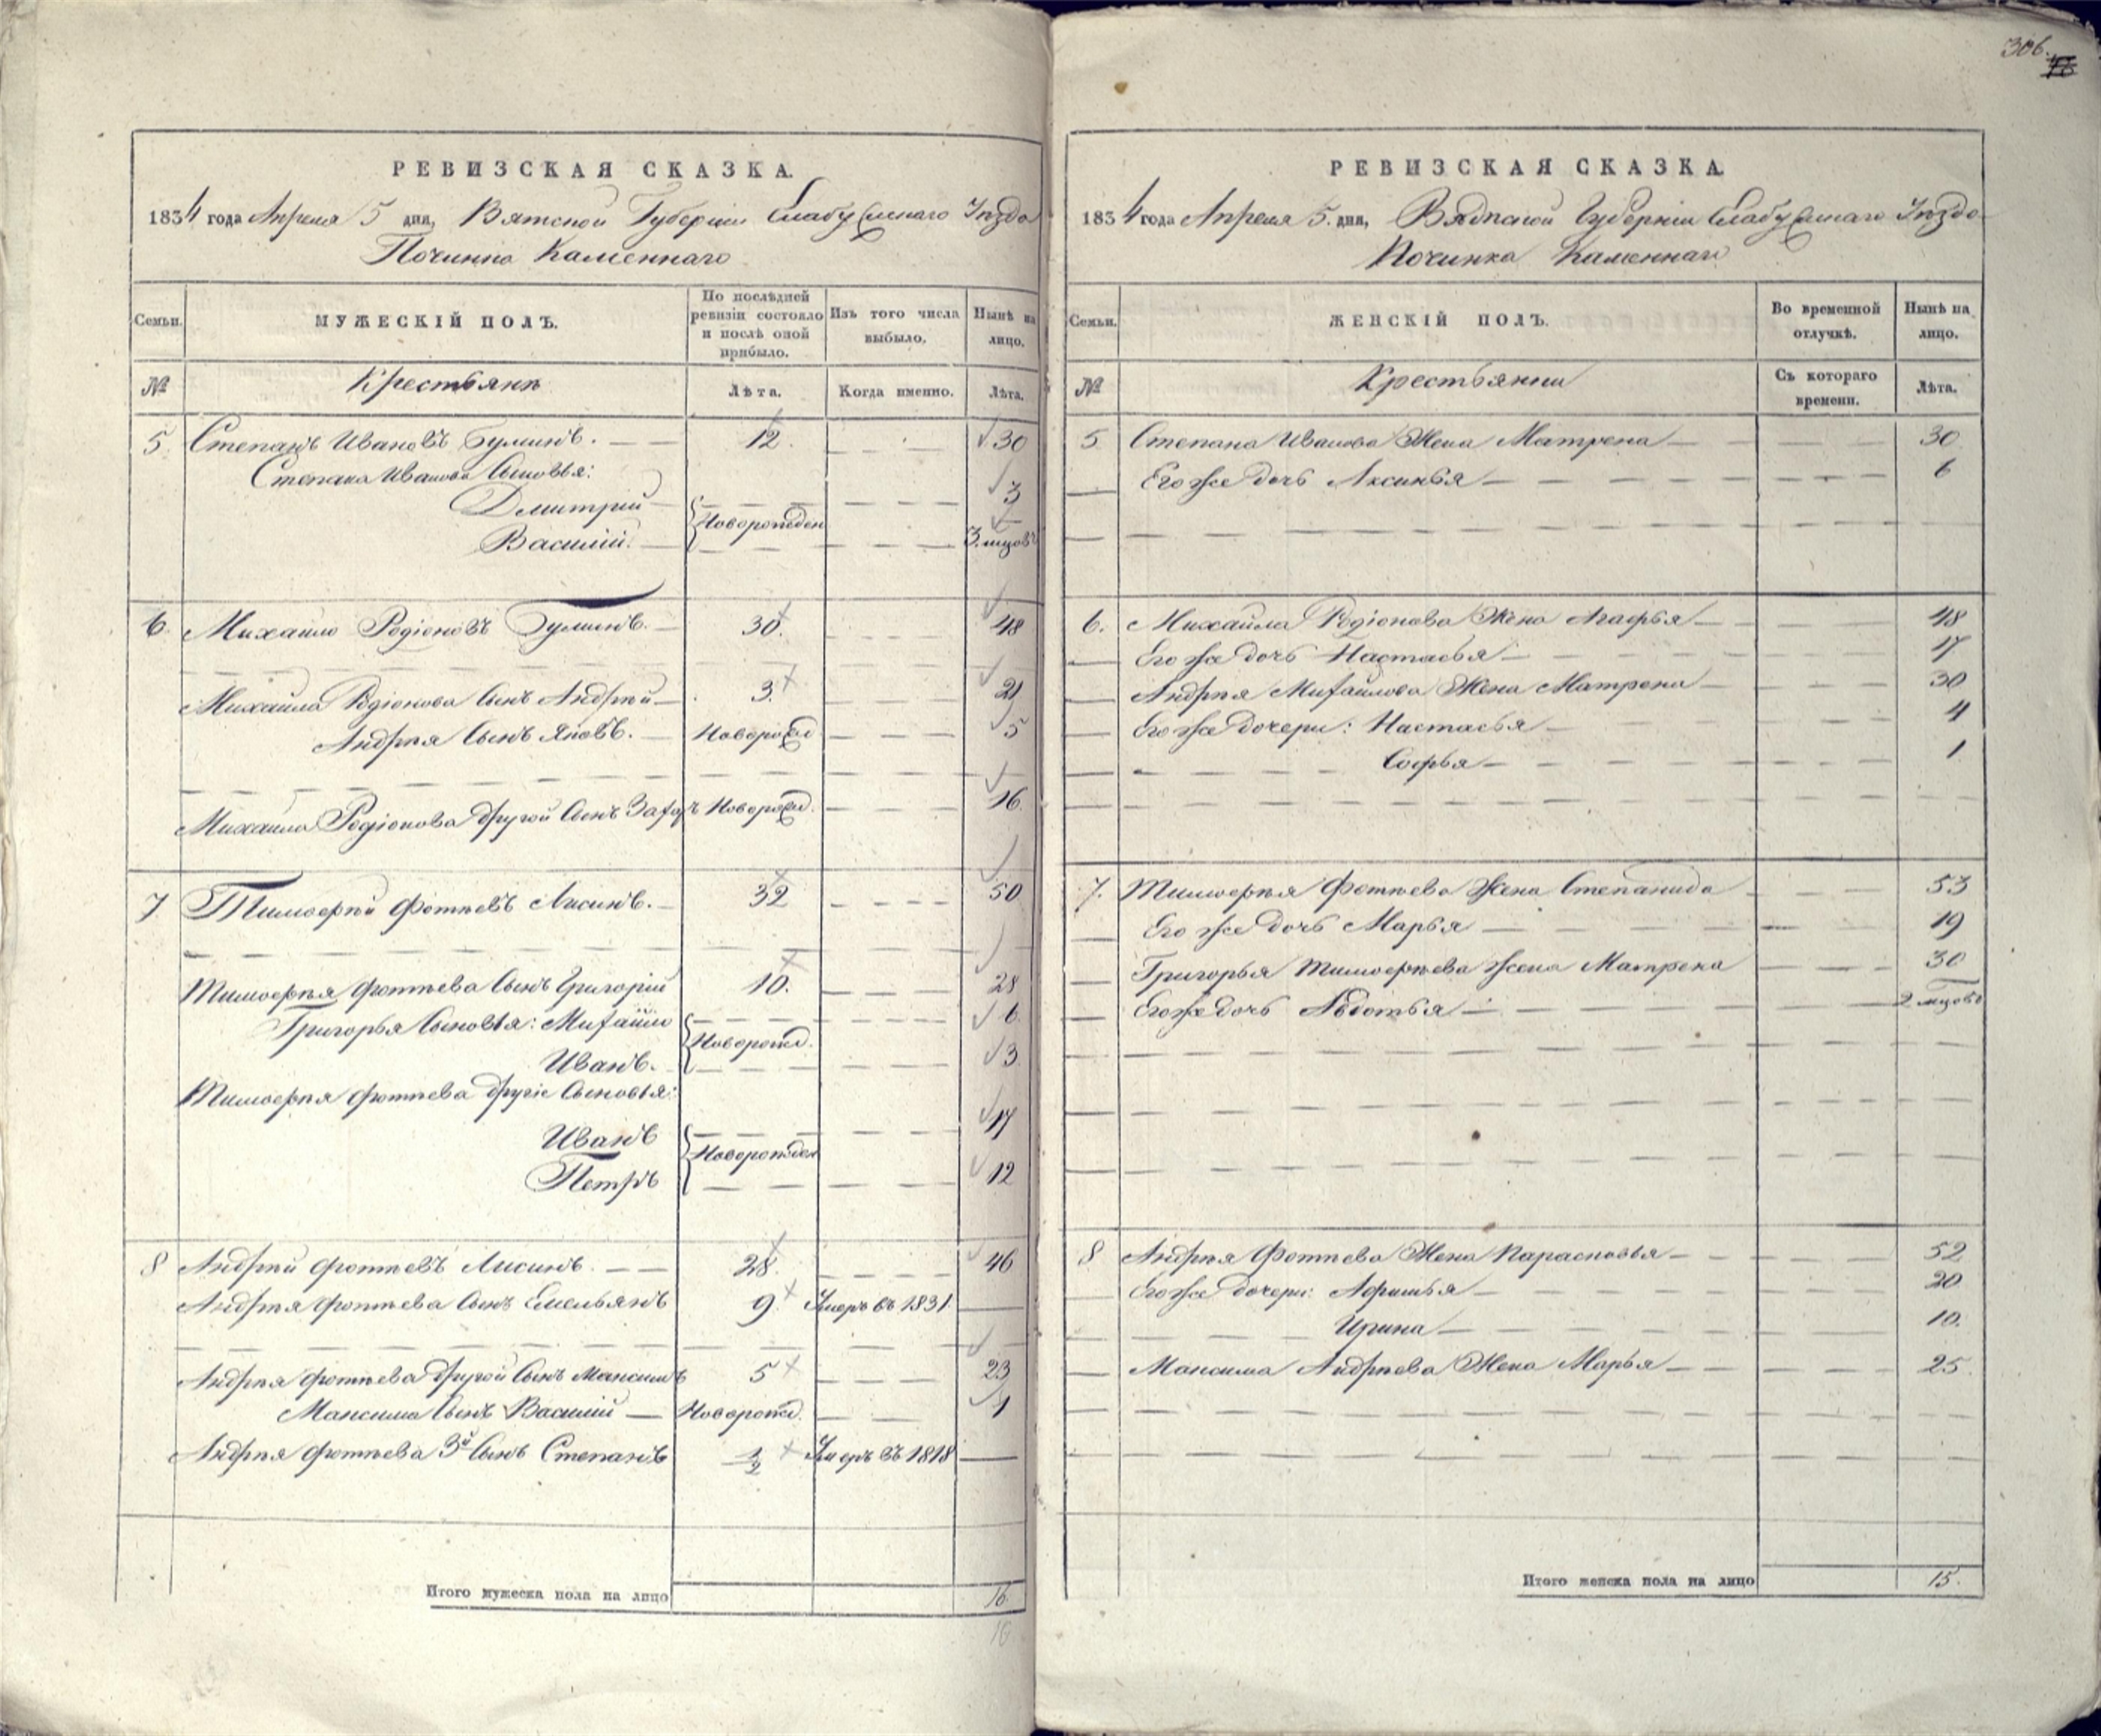 РЕВИЗСКАЯ СКАЗКА.
1834 года Апреля 5 дня, Вятской Губерніи Елабужскаго Уѣзда
Починка Каменнаго
Семьи.
МУЖЕСКІЙ ПОЛЪ.
По послѣдней ревизіи состояло и послѣ оной прибыло.
Изъ того числа выбыло.
Нынѣ на лицо.
№
Крестьянѣ
Лѣта.
Когда именно.
Лѣта.
5. Степанъ Ивановъ Гулинъ. 12. 30
Степана Иванова Сыновья:
Дмитрій 3
Новорожден
Василій. 3. мцовъ
6. Михайло Родіоновъ Гулинъ. 30. 48
Михайла Родіонова Сынъ Андрей 3. 21
Андрея Сынъ Яковъ. Новорожд 5
Михайла Родіонова другой Сынъ Захаръ Новорожд. 16.
7. Тимоѳей Фотѣевъ Лисинъ. 32 50
Тимоѳея Фотѣева Сынъ Григорій 10. 28
Григорья Сыновья: Михайло 6
Новорожд.
Иванъ. 3
Тимоѳея Фотѣева другіе Сыновья:
Иванъ 17
Новорожден
Петръ 12
8 Андрей Фотѣевъ Лисинъ. 28. 46
Андрея Фотѣева Сынъ Емельянъ 9. Умеръ въ 1831.
Андрея Фотѣева другой Сынъ Максимъ 5 23
Максима Сынъ Василій Новорожд. 1
Андрея Фотѣева 3й Сынъ Степанъ 1/2 Умеръ въ 1818
Итого мужеска пола на лицо 16.
16.
306.
РЕВИЗСКАЯ СКАЗКА.
1834 года Апреля 5. дня, Вятской Губерніи Елабужскаго Уѣзда
Починка Каменнаго
Семьи.
ЖЕНСКІЙ ПОЛЪ.
Во временной отлучкѣ.
Нынѣ на лицо.
№
Крестьянки
Съ котораго времени.
Лѣта.
5 Степана Иванова Жена Матрена 30.
Его же дочь Аксинья 6
6. Михайла Родіонова Жена Агафья 48
Его же дочь Настасья 17
Андрея Михайлова Жена Матрена 30
Его же дочери: Настасья 4
Софья 1.
7. Тимоѳея Фотѣева Жена Степанида 53
Его же дочь Марья 19
Григорья Тимоѳеева Жена Матрена 30
Его же дочь Авдотья 2 мцовъ
8 Андрея Фотѣева Жена Парасковья 52
Его же дочери: Афимья 20
Ирина 10.
Максима Андрѣева Жена Марья 25.
Итого женска пола на лицо 15.